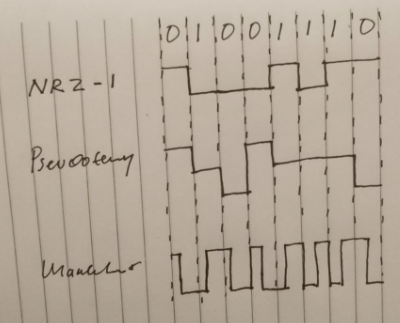 0 1 0 0 1 1 1 0
NRZ-1
Pseudoternary
Manchester